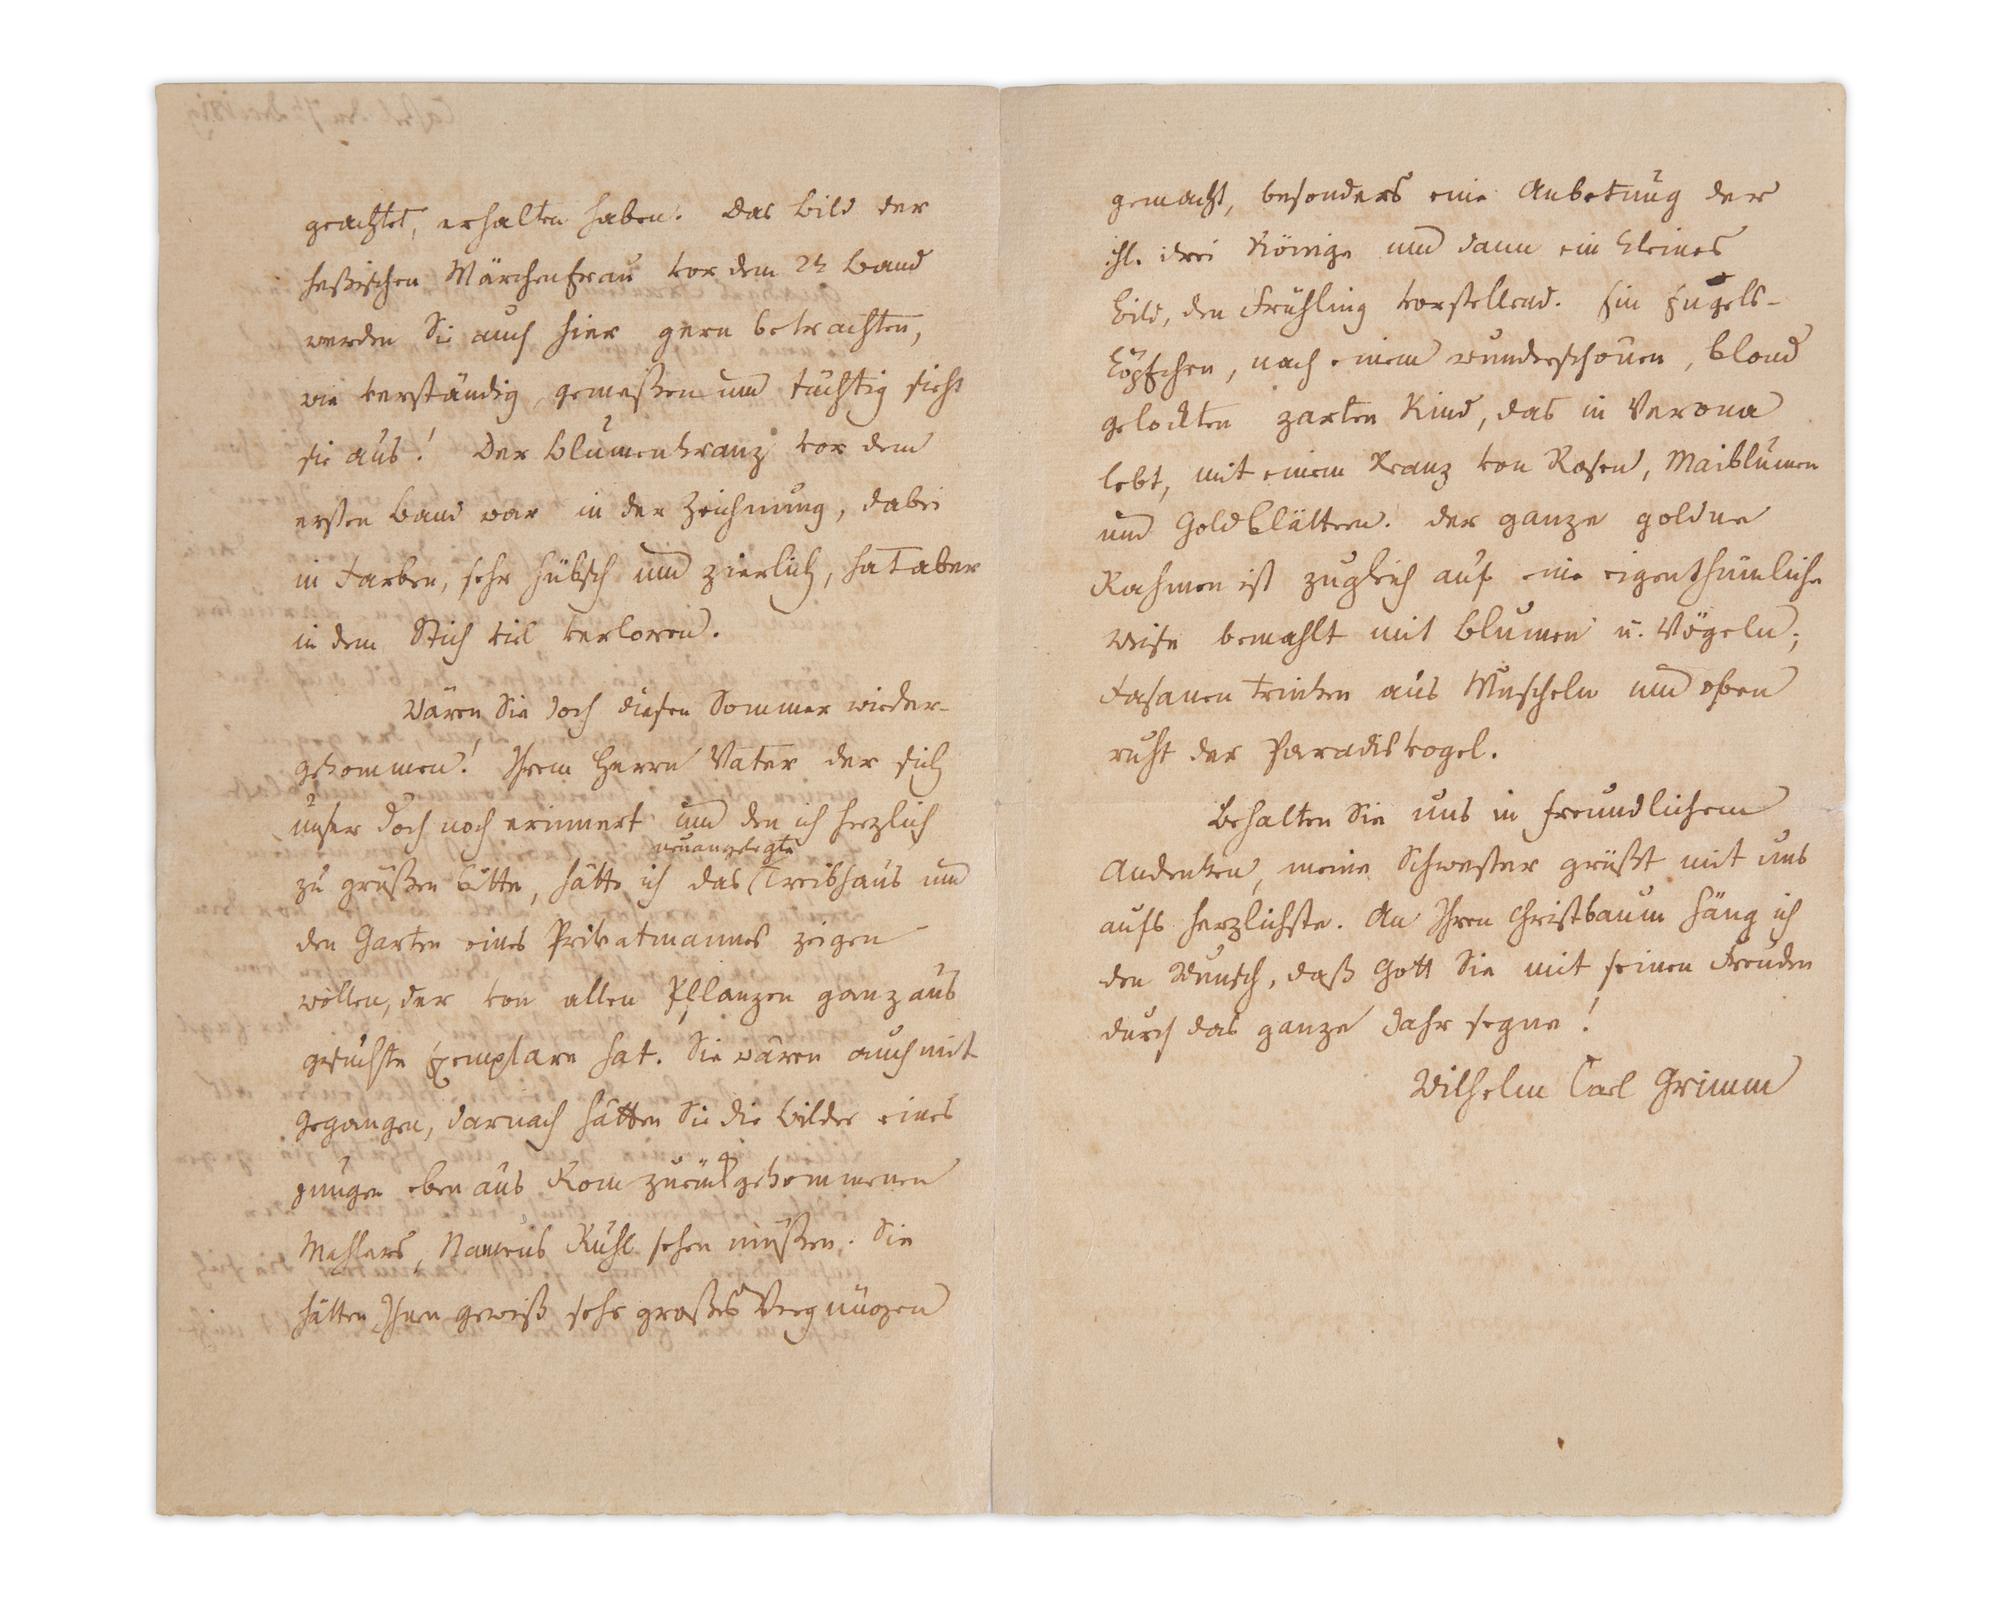 geachtet, erhalten haben. Das Bild der
heßischen Märchenfrau vor dem 2t Band
werden Sie auch hier gern betrachten,
wie verständig, gemeßen und tüchtig sieht
sie aus! Der Blumenkranz vor dem
ersten Band war in der Zeichnung, dabei
in Farben, sehr hübsch und zierlich, hat aber
in dem Stich viel verloren.
Wären Sie doch diesen Sommer wieder-
gekommen! Ihrem Herrn Vater der sich
unser doch noch erinnert und den ich herzlich
neuangelegte
zu grüßen bitte, hätte ich das Treibhaus und
den Garten eines Privatmannes zeigen
wollen, der von allen Pflanzen ganz aus
gesuchte Exemplare hat. Sie wären auch mit
gegangen, darnach hätten Sie die Bilder eines
jungen eben aus Rom zurückgekommenen
Mahlers, Namens Ruhl sehen müßen. Sie
hätten Ihnen gewiß sehr großes Vergnügen
gemacht, besonders eine Anbetung der
hl. drei Könige und dann ein kleines
Bild, den Frühling vorstellend. Ein Engels-
köpfchen, nach einem wunderschönen, blond
gelockten zarten Kind, das in Verona
lebt, mit einem Kranz von Rosen, Maiblumen
und Goldblättern. der ganze goldne
Rahmen ist zugleich auf eine eigenthümliche
Weise bemahlt mit Blumen u. Vögeln;
Fasanen trinken aus Muscheln und oben
ruht der Paradisvogel.
Behalten Sie uns in freundlichem
Andenken, meine Schwester grüßt mit uns
aufs herzlichste. An Ihren Christbaum häng ich
den Wunsch, daß Gott Sie mit seinen Freuden
durch das ganze Jahr segne!
Wilhelm Carl Grimm